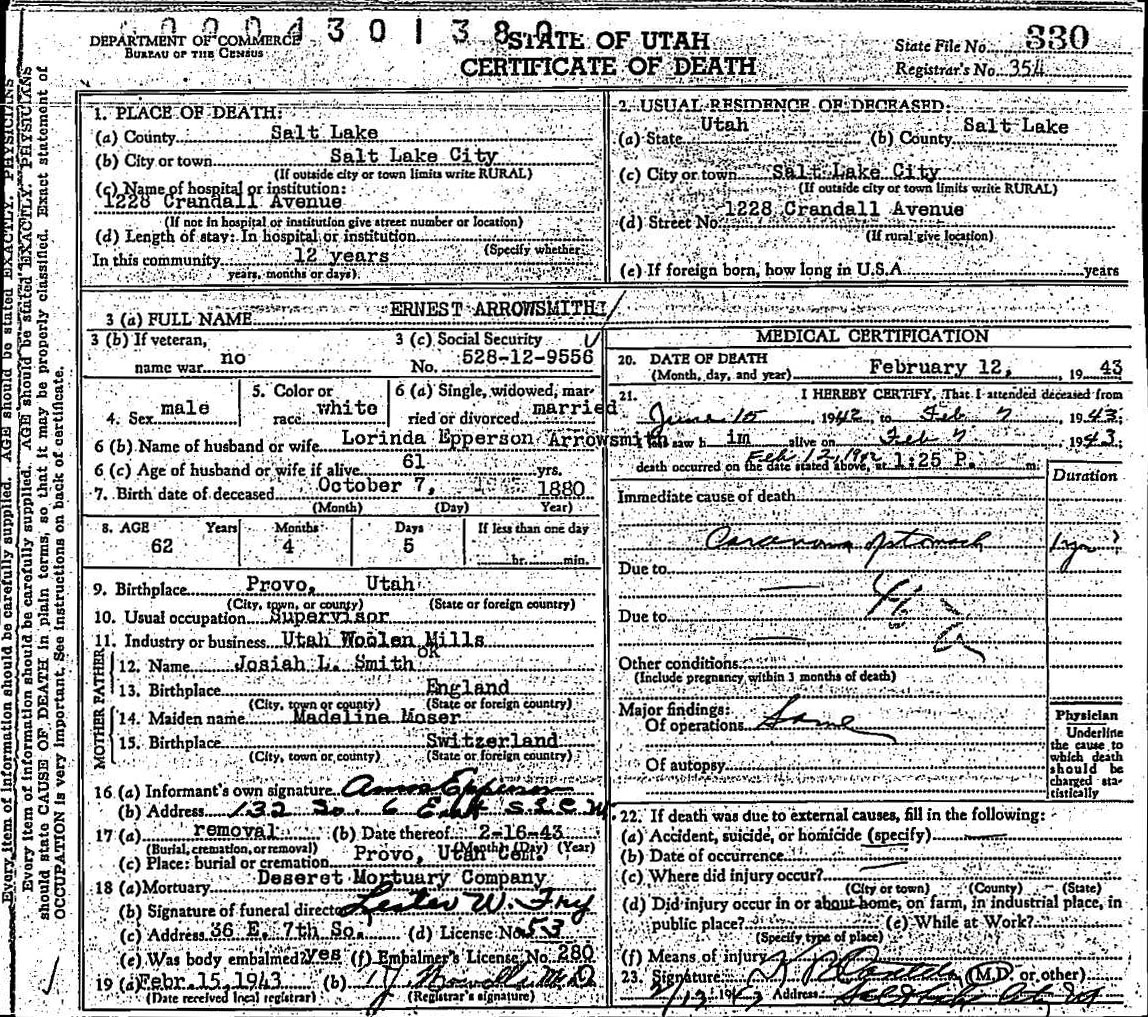 0000430 1380
DEPARTMENT OF COMMERCE
BUREAU OF THE CENSUS
STATE OF UTAH
CERTIFICATE OF DEATH
State File No. 330
Registrar's No. 354
Every item of information should be carefully supplied. AGE should be stated EXACTLY. PHYSICIANS
should state CAUSE OF DEATH in plain terms, so that it may be properly classified. Exact statement of
OCCUPATION is very important. See instructions on back of certificate.
1. PLACE OF DEATH:
(a) County Salt Lake
(b) City or town Salt Lake City
(If outside city or town limits write RURAL)
(c) Name of hospital or institution:
1228 Crandall Avenue
(If not in hospital or institution give street number or location)
(d) Length of stay: In hospital or institution
(Specify whether
In this community 12 years
years, months or days)
2. USUAL RESIDENCE OF DECEASED:
(a) State Utah (b) County Salt Lake
(c) City or town Salt Lake City
(If outside city or town limits write RURAL)
(d) Street No. 1228 Crandall Avenue
(If rural give location)
(e) If foreign born, how long in U.S.A. years
3 (a) FULL NAME ERNEST ARROWSMITH
3 (b) If veteran,
name war no
3 (c) Social Security
No. 528-12-9556
4. Sex male
5. Color or
race white
6 (a) Single, widowed, mar-
ried or divorced married
6 (b) Name of husband or wife Lorinda Epperson Arrowsmith
6 (c) Age of husband or wife if alive 61 yrs.
7. Birth date of deceased October 7, 1880
(Month) (Day) Year)
8. AGE Years Months Days If less than one day
62 4 5 hr. min.
9. Birthplace Provo, Utah
(City, town, or county) (State or foreign country)
10. Usual occupation Supervisor
11. Industry or business Utah Woolen Mills
OK
FATHER
12. Name Josiah L. Smith
13. Birthplace England
(City, town or county) (State or foreign country)
MOTHER
14. Maiden name Madeline Moser
15. Birthplace Switzerland
(City, town or county) (State or foreign country)
16 (a) Informant's own signature Epperson
(b) Address 132 So. 6 East S.L.C.
17 (a) removal (b) Date thereof 2-16-43
(Burial, cremation, or removal) (Month) (Day) (Year)
(c) Place: burial or cremation Provo, Utah Cem.
18 (a) Mortuary Deseret Mortuary Company
(b) Signature of funeral director Lester W. Fry
(c) Address 36 E. 7th So. (d) License No. 53
(e) Was body embalmed? Yes (f) Embalmer's License No. 280
19 (a) Febr. 15, 1943 (b) M.D.
(Date received local registrar) (Registrar's signature)
MEDICAL CERTIFICATION
20. DATE OF DEATH
(Month, day, and year) February 12, 19 43
21. I HEREBY CERTIFY, That I attended deceased from
June 15 1942 to Feb 7 1943.
last saw h im alive on Feb 7 1943.
Feb 12,
death occurred on the date stated above, at 1:25 P. m.
Duration
Immediate cause of death
Carcinoma of stomach 1 yr ?
Due to
Due to
Other conditions
(Include pregnancy within 3 months of death)
Major findings:
Of operations Same
Of autopsy
Physician
Underline
the cause to
which death
should be
charged sta-
tistically
22. If death was due to external causes, fill in the following:
(a) Accident, suicide, or homicide (specify)
(b) Date of occurrence
(c) Where did injury occur?
(City or town) (County) (State)
(d) Did injury occur in or about home, on farm, in industrial place, in
public place? (e) While at Work?
(Specify type of place)
(f) Means of injury
23. Signature (M.D. or other)
Address Salt Lake City